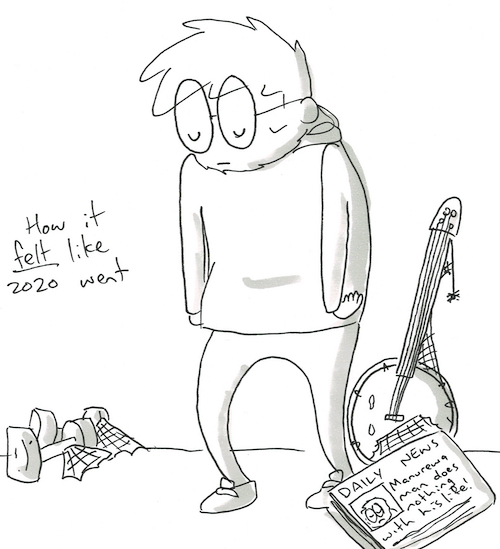 How it
felt like
2020 went
DAILY NEWS
Manurewa
man does
nothing
with his life!